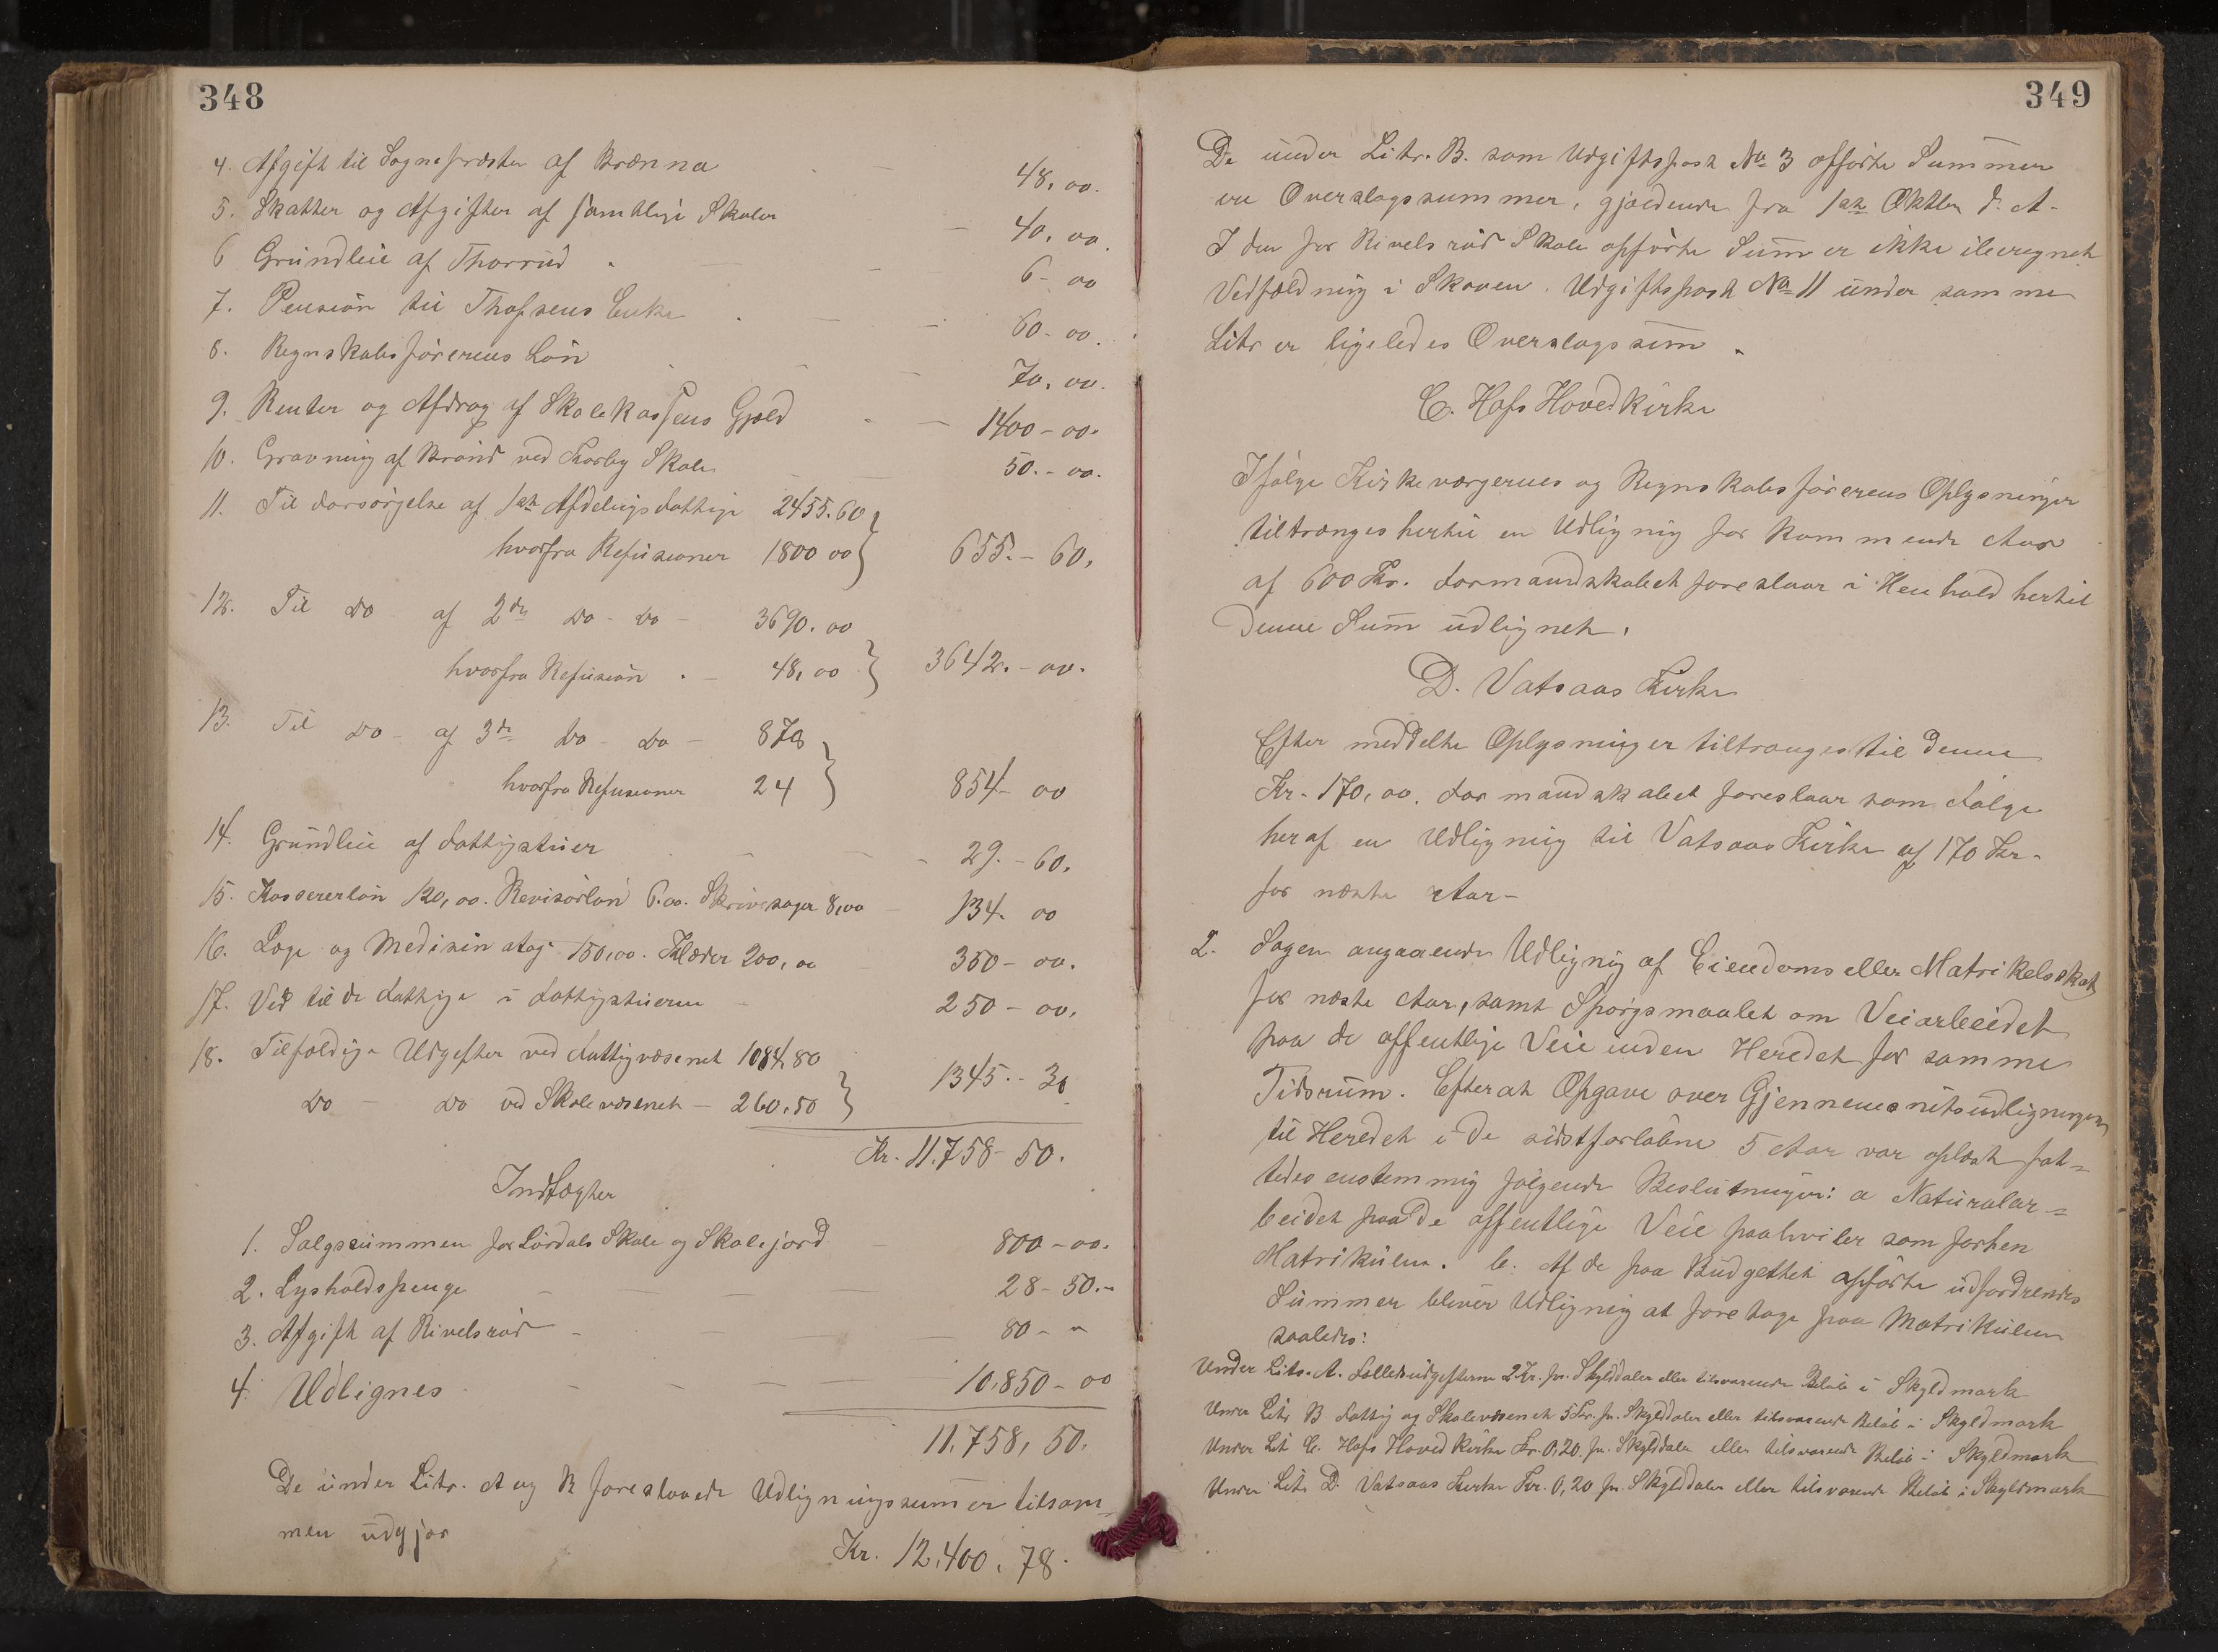 348
4. Afgift til Sognepræsten af Brænna - 48,00.
5. Skatter og Afgifter af samtlige Skoler - 40,00.
6 Grundleie af Thorrud - 6-00
7. Pension til Thofsens Enke - - 60-00.
8. Regnskabsførerens Løn - - 70,00.
9. Renter og Afdrag af Skolekassens Gjæld - 1400-00.
10. Gravning af Brønd ved Forby Skole - 50.-00.
11. Til Forsørgelse af 1ste Afdelings Fattige 2455.60
hvorfra Refusioner 1800 00 } 655.-60.
12. Til Do af 2den Do - Do - 3690.00
hvorfra Refusion - 48,00 } 3642.-00.
13. Til Do - af 3die Do - Do - 878
hvorfra Refusioner 24 } 854-00
14. Grundleie af Fattigstuer - - - 29.-60.
15. Kassererløn 120,00. Revisorløn 6.00. Skrivesager 8,00 - 134.00
16. Læge og Medisin 150,00. Klæder 200,00 350-00.
17. Ved til de Fattige i Fattigstuerne - 250-00.
18. Tilfældige Udgifter ved Fattigvæsenet 1084,80
Do - Do ved Skolevæsenet - 260,50 } 1345.-30
Kr. 11.758-50.
Indtægter
1. Salgssummen for Lørdals Skole og Skolejord - 800-00.
2. Lysholdspenge - - - - 28-50.-
3. Afgift af Rivelsrød - - - 80-"
4. Udlignes - - - - 10,850-00
11.758,50.
De under Litr. A og B foreslaaede Udligningssummer tilsam-
men udgjør
Kr. 12,400.78.
349
De under Litr. B. som Udgiftspost No 3 opførte Summer
ere Overslagssummer, gjældende fra 1ste Oktbr d. A.
I den for Rivelsrød Skole opførte Sum er ikke iberegnet
Vedfældning i Skoven. Udgiftspost No 11 under samme
Litr er ligeledes Overslagssum.
C. Hofs Hovedkirke
Ifølge Kirkeværgernes og Regnskabsførerens Oplysninger
tiltrænges hertil en Udligning for kommende Aar
af 600 Kr. Formandskabet foreslaar i Henhold hertil
denne Sum udlignet.
D. Vatsaas Kirke
Efter meddelte Oplysninger tiltrænges til denne
Kr. 170,00. Formandskabet foreslaar som Følge
heraf en Udligning til Vatsaas Kirke af 170 Kr.
for næste Aar-
2. Sagen angaaende Udligning af Eiendoms eller Matrikelsskat
for næste Aar, samt Spørgsmaalet om Veiarbeidet
paa de offentlige Veie inden Heredet for samme
Tidsrum. Efterat Opgave over Gjennemsnitsudligningen
til Heredet i de sidstforløbne 5 Aar var oplæst fat-
tedes enstemmig følgende Beslutninger: a Naturalar-
beidet paa de offentlige Veie paahviler som forhen
Matrikulen. b. Af de paa Budgettet opførte udfordrendes
Summer bliver Udligning at foretage paa Matrikulen
saaledes:
Under Litr. A. Fællesudgifterne 2 Kr. pr. Skylddaler eller tilsvarende Beløb i Skyldmark
Under Litr B Fattig og Skolevæsenet 5 Kr. pr. Skylddaler eller tilsvarende Beløb i Skyldmark
Under Lit C. Hofs Hovedkirke Kr. 0,20 pr. Skylddaler eller tilsvarende Beløb i Skyldmark
Under Litr D. Vatsaas Kirke Kr. 0,20 pr. Skylddaler eller tilsvarende Beløb i Skyldmark